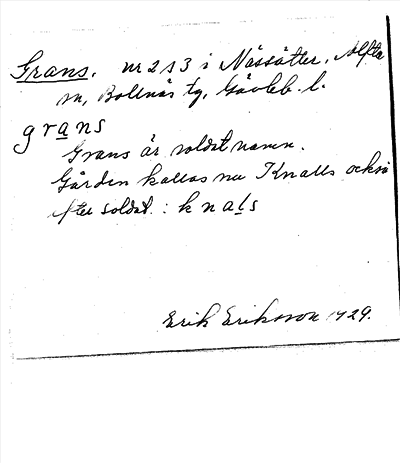 Grans. nr 2 o 3 i Nässätter, Alfta
sn, Bollnäs tg, Gävleb. l.
grans
Grans är soldatnamn.
Gården kallas nu Knalls också
efter soldat : knals
Erik Eriksson 1929.